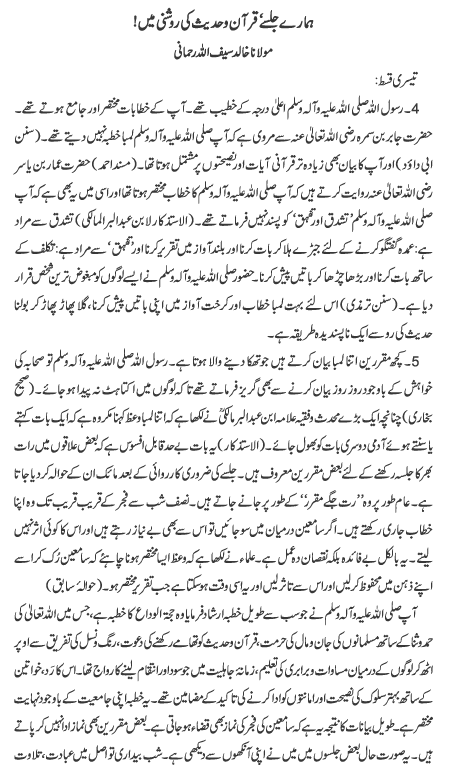 ہمارے جلسے، قرآن و حدیث کی روشنی میں!
مولانا خالد سیف اللہ رحمانی
تیسری قسط:
4۔ رسول اللہ صلی اللہ علیہ وآلہ وسلم اعلیٰ درجہ کے خطیب تھے۔ آپ کے خطابات مختصر اور جامع ہوتے تھے۔
حضرت جابر بن سمرہ رضی اللہ تعالیٰ عنہ سے مروی ہے کہ آپ صلی اللہ علیہ وآلہ وسلم لمبا خطبہ نہیں دیتے تھے۔ (سنن
ابی داؤد) اور آپ کا بیان بھی زیادہ تر قرآنی آیات اور نصیحتوں پر مشتمل ہوتا تھا۔ (مسند احمد) حضرت عمار بن یاسر
رضی اللہ تعالیٰ عنہ روایت کرتے ہیں کہ آپ صلی اللہ علیہ وآلہ وسلم کا خطاب مختصر ہوتا تھا اور اسی میں یہ بھی ہے کہ آپ
صلی اللہ علیہ وآلہ وسلم ’تشدق اور تفیہق‘ کو پسند نہیں فرماتے تھے۔ (الاستذکار لابن عبدالبر المالکی) تشدق سے مراد
ہے: عمدہ گفتگو کرنے کے لئے جبڑے ہلا کر بات کرنا اور بلند آواز میں تقریر کرنا اور ’تفیہق‘ سے مراد ہے: تکلف کے
ساتھ بات کرنا اور بڑھا چڑھا کر باتیں پیش کرنا۔ حضور صلی اللہ علیہ وآلہ وسلم نے ایسے لوگوں کو مبغوض ترین شخص قرار
دیا ہے۔ (سنن ترمذی) اس لئے بہت لمبا خطاب اور کرخت آواز میں اپنی باتیں پیش کرنا، گلا پھاڑ پھاڑ کر بولنا
حدیث کی رو سے ایک ناپسندیدہ طریقہ ہے۔
5۔ کچھ مقررین اتنا لمبا بیان کرتے ہیں جو تھکا دینے والا ہوتا ہے۔ رسول اللہ صلی اللہ علیہ وآلہ وسلم تو صحابہ کی
خواہش کے باوجود روز روز بیان کرنے سے بھی گریز فرماتے تھے تاکہ لوگوں میں اکتاہٹ نہ پیدا ہو جائے۔ (صحیح
بخاری) چنانچہ ایک بڑے محدث و فقیہ علامہ ابن عبدالبر مالکیؒ نے لکھا ہے کہ اتنا لمبا وعظ کہنا مکروہ ہے کہ ایک بات کہتے
یا سنتے ہوئے آدمی دوسری بات کو بھول جائے۔ (الاستذکار) یہ بات بے حد قابل افسوس ہے کہ بعض علاقوں میں رات
بھر کا جلسہ رکھنے کے لئے بعض مقررین معروف ہیں۔ جلسے کی ضروری کارروائی کے بعد مائک ان کے حوالہ کر دیا جاتا
ہے۔ عام طور پر وہ ’’رت جگے مقرر‘‘ کے طور پر جانے جاتے ہیں۔ نصف شب سے فجر کے قریب قریب تک وہ اپنا
خطاب جاری رکھتے ہیں۔ اگر سامعین درمیان میں سو جائیں تو اس سے بھی بے نیاز رہتے ہیں اور اس کا کوئی اثر نہیں
لیتے۔ یہ بالکل بے فائدہ بلکہ نقصان دہ عمل ہے۔ علماء نے لکھا ہے کہ وعظ ایسا مختصر ہونا چاہئے کہ سامعین رُک کر اسے
اپنے ذہن میں محفوظ کر لیں اور اس سے تاثر لیں اور یہ اسی وقت ہو سکتا ہے جب تقریر مختصر ہو۔ (حوالہ سابق)
آپ صلی اللہ علیہ وآلہ وسلم نے جو سب سے طویل خطبہ ارشاد فرمایا وہ حجۃ الوداع کا خطبہ ہے، جس میں اللہ تعالیٰ کی
حمد و ثنا کے ساتھ مسلمانوں کی جان و مال کی حرمت، قرآن و حدیث کو تھامے رکھنے کی دعوت، رنگ و نسل کی تفریق سے اوپر
اٹھ کر لوگوں کے درمیان مساوات و برابری کی تعلیم، زمانۂ جاہلیت میں جو سود اور انتقام لینے کا رواج تھا۔ اس کا رَد، خواتین
کے ساتھ بہتر سلوک کی نصیحت اور امانتوں کو ادا کرنے کی تاکید کے مضامین تھے۔ یہ خطبہ اپنی جامعیت کے باوجود نہایت
مختصر ہے۔ طویل بیانات کا نتیجہ یہ ہے کہ سامعین کی فجر کی نماز بھی قضاء ہو جاتی ہے۔ بعض مقررین بھی نماز ادا نہیں کر پاتے
ہیں۔ یہ صورت حال بعض جلسوں میں میں نے اپنی آنکھوں سے دیکھی ہے۔ شب بیداری تو اصل میں عبادت، تلاوت